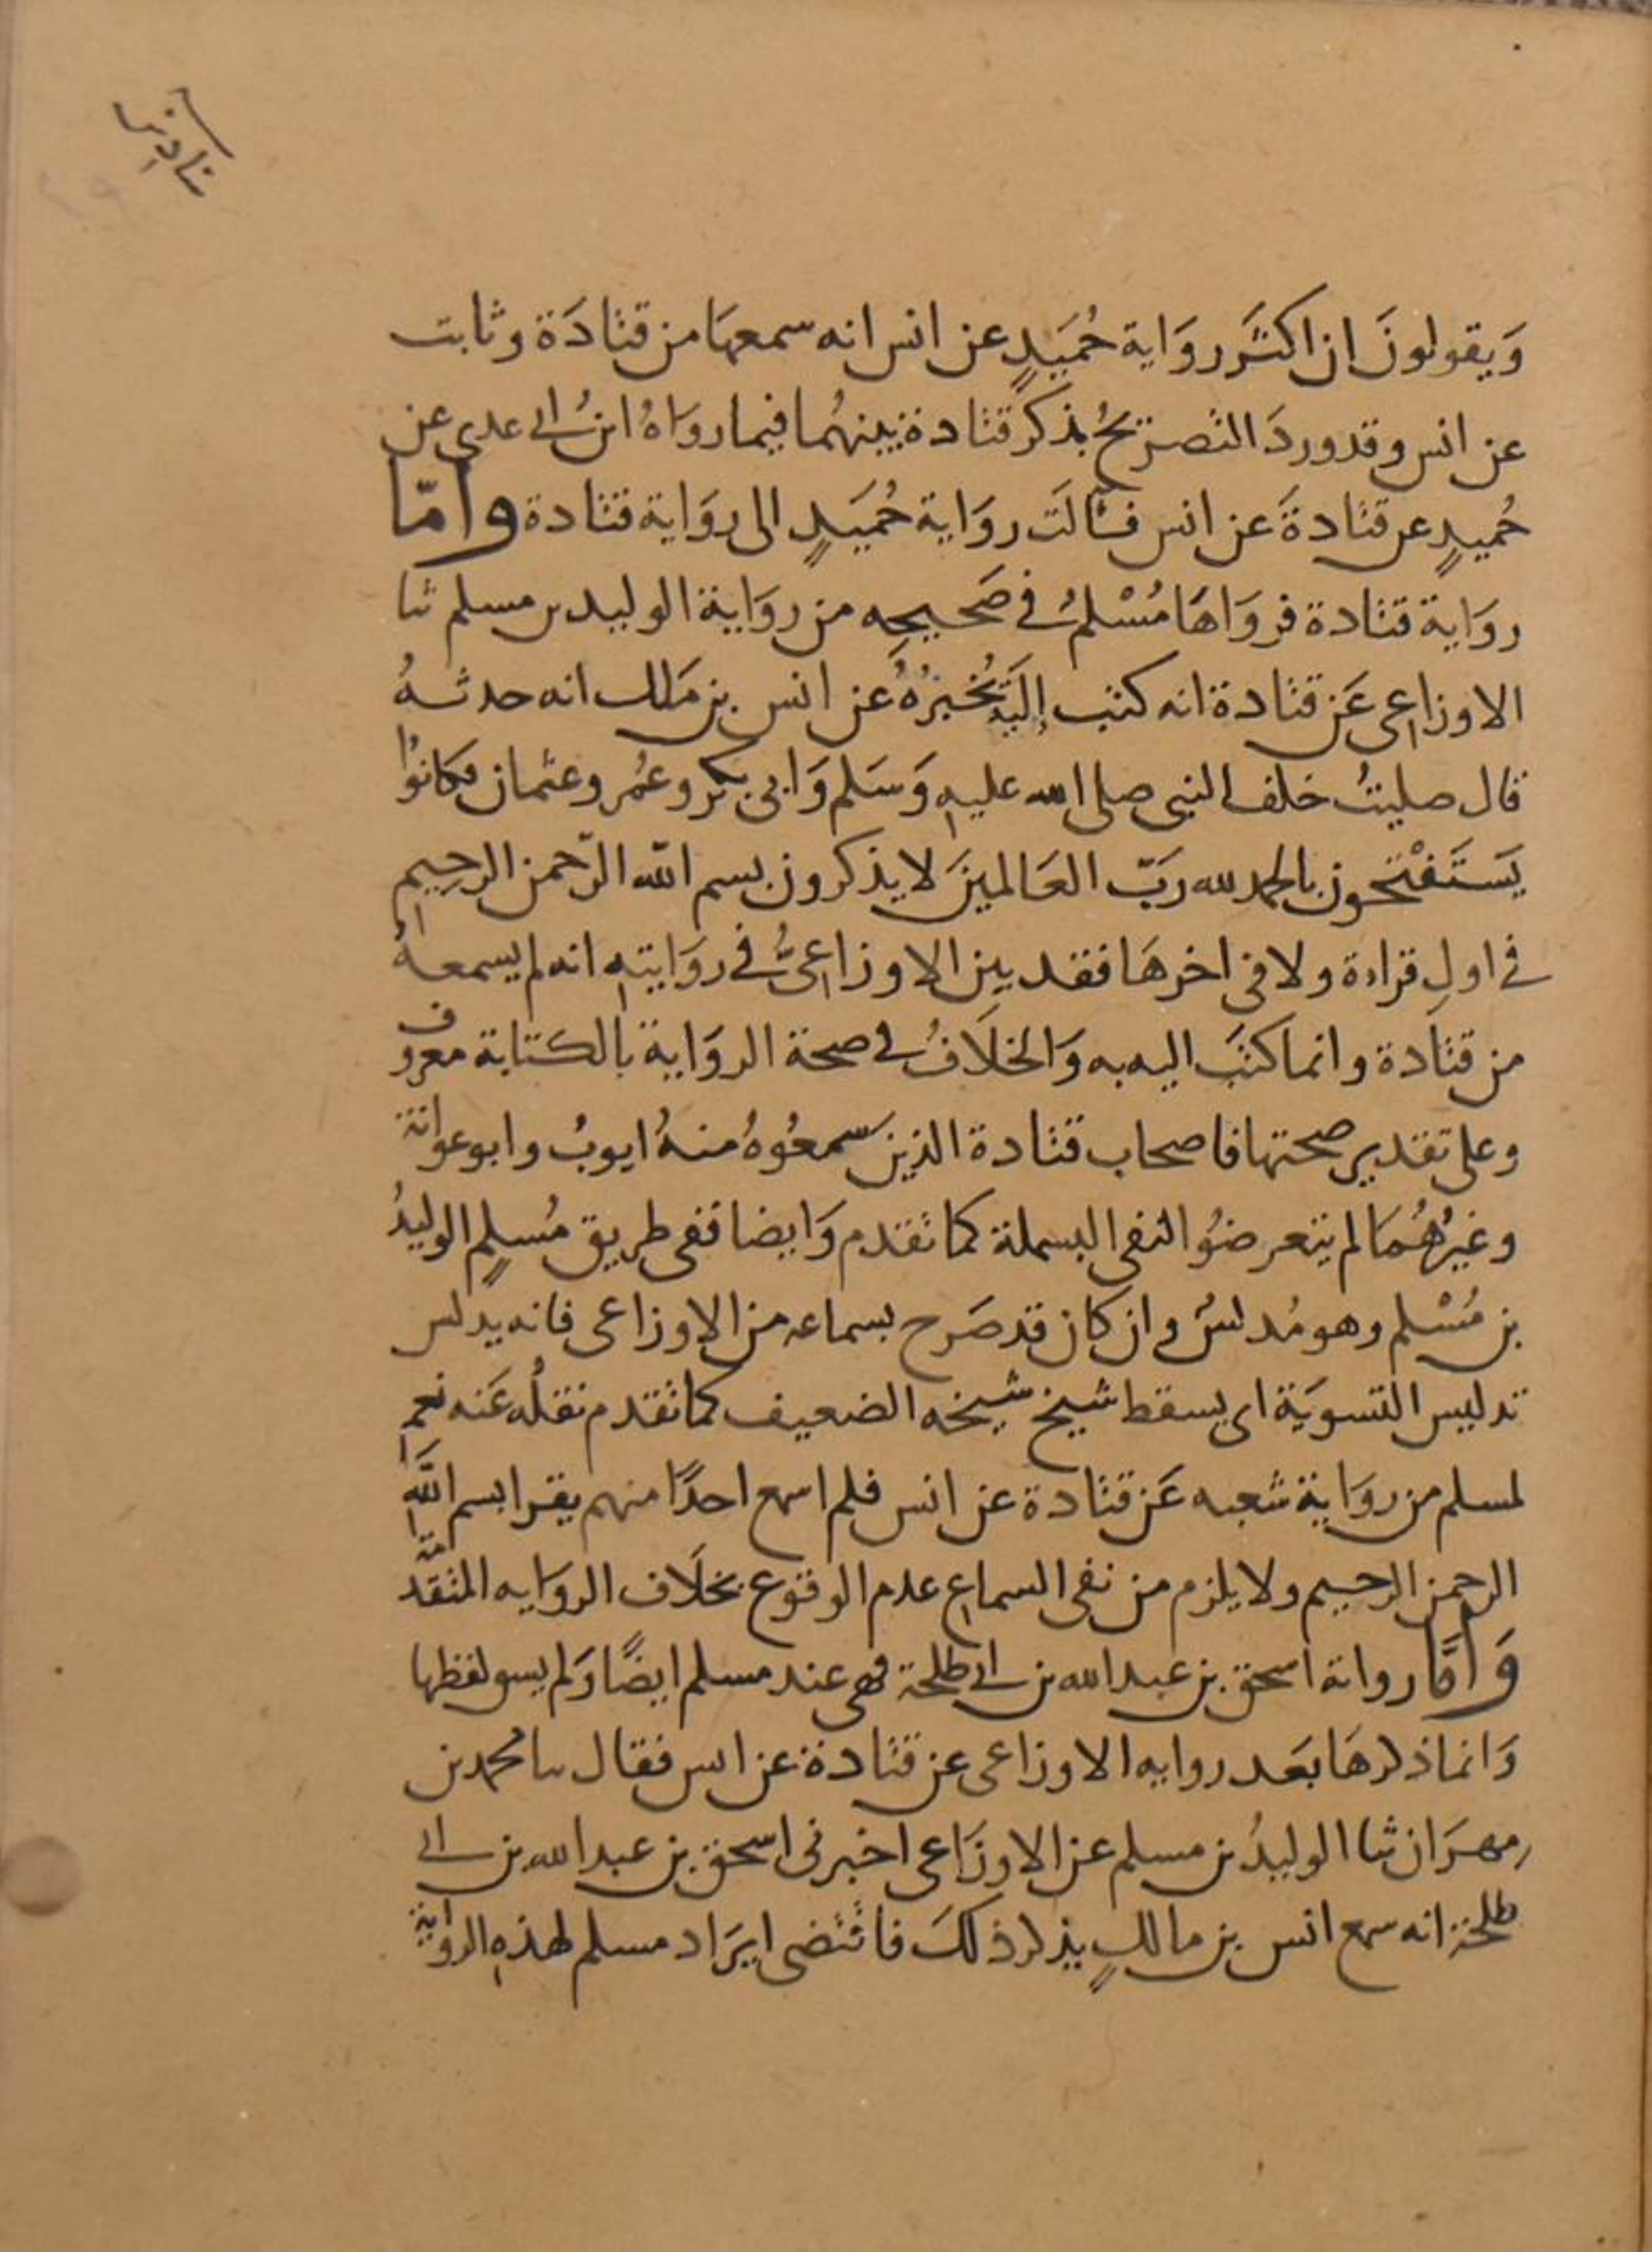 وَيقولونَ ان اكثَر روَاية حُمَيدٍ عن انس انه سمعهَا من قتادَة وثابت
عن انس وقد وردَ التصريحُ بذكر قتادة بينهُما فيما روَاهُ ابنُ ابى عدي عن
حُميدٍ عن قتادةَ عن انس فآلَت روَاية حُمَيدٍ الى روَاية قتادة وامّا
روَاية قتادة فروَاهَا مُسْلمُ في صَحيحِه من روَاية الوليد بن مسلم ثنا
الاوزاعي عَن قتادة انه كتب إليَه يُخبرُهُ عن انس بن مَلك انه حدثهُ
قال صليتُ خلف النبي صلى الله عليهِ وَسَلم وَابي بكر وعُمر وعثمان فكانوُا
يَستَفْتحون بالحمد لله رَبّ العَالمينَ لا يذكرون بسم الله الرّحمن الرحيِم
في اولِ قراءة ولا في اخرهَا فقد بين الاوزاعيُّ في روَايتهِ انه لم يسمعهُ
من قتادة وانما كتبَ اليه به وَالخلَافُ في صحة الروَاية بالكتابة معروف
وعلى تقدير صحتها فاصحاب قتادة الذينَ سَمعُوهُ منهُ ايوبُ وابو عوانة
وغيرُهُمَا لم يتعرضوُا لنفي البسملة كما تقدم وَايضا ففي طريق مُسلمٍ الوليدُ
بن مُسْلم وهو مُدلسُ وان كان قد صَرح بسماعه من الاوزاعي فانه يدلس
تدليس التسويَة اي يسقط شيخ شيخه الضعيف كما تقدم نقلُه عَنه نعم
لمسلم من روَاية شعبه عَن قتادة عن انس فلم اسمع احدًا منهم يقرا بسم اللَّهِ
الرحمن الرحيم ولا يلزم من نفي السماع عدم الوقوع بخلَاف الروَايه المتقدمة
وَامَّا رواية اسحق بن عبد الله بن ابى طلحة فهي عند مسلم ايضًا وَلم يسق لفظها
وَانما ذكرهَا بعَد روايه الاوزاعي عن قتادة عن انس فقال ثنا محمد بن
مهرَان ثنا الوليدُ بن مسلم عن الاوزَاعي اخبرني اسحق بن عبد الله بن ابى
طلحة انه سمع انس بن مالكٍ يذكر ذلكَ فاقتضى ايرَاد مسلم لهذهِ الرواية